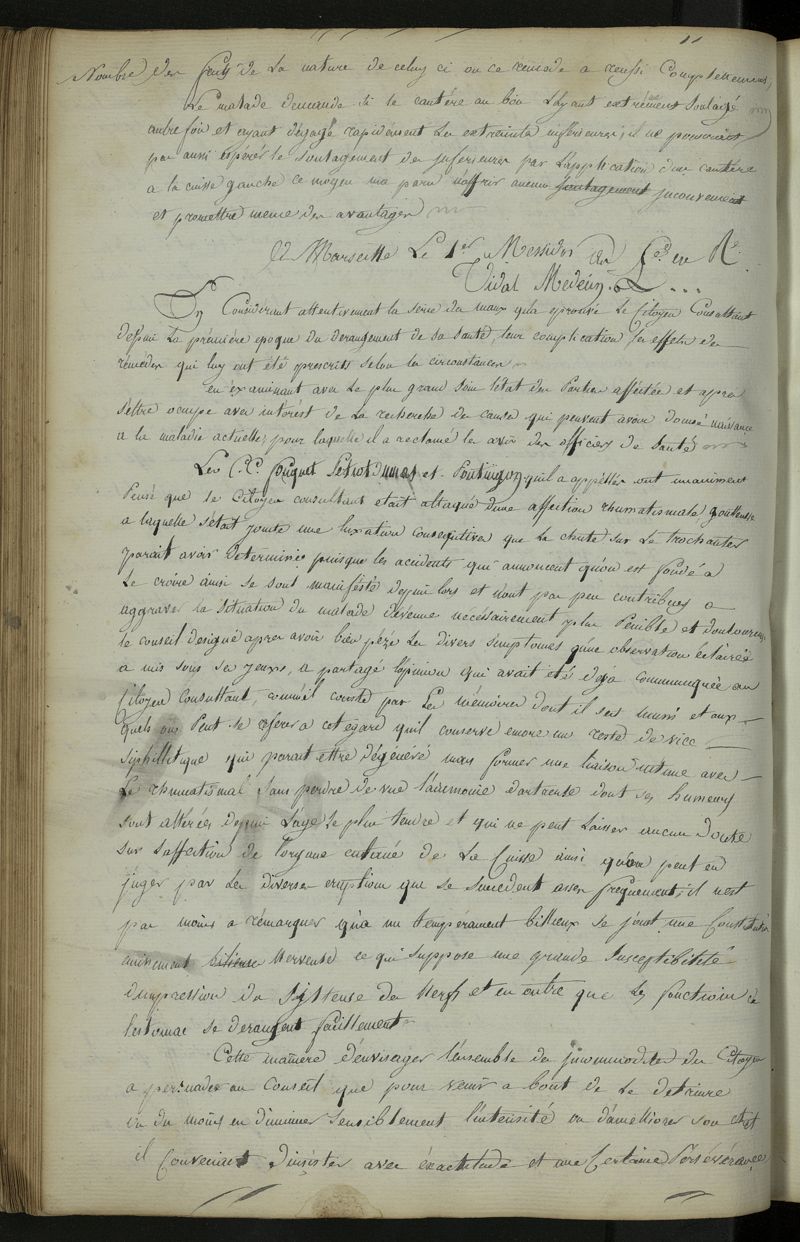 11
Nombre des faits de la nature de celuy ci ou ce remede a reussi Complettement,
Le malade demande si le cautére au bras L'ayant extrémement Soulagé
autre fois et ayant dégagé rapidement les extremités inférieures, il ne pourrait
pas aussi espérér le soulagement des Inferieures par L'application d'un cautére
a la cuisse gauche ce moyen ma paru n'offrir aucun soulagement jnconvenient
et promettre meme des avantages
A Marseille Le 1er Messidor an
Vidal Medecin
En Considerant attentivement la serie des maux qu'a eprouvé Le Citoyen Consultant
depuis La prémière époque du derangement de sa santé, leur complication les effets des
rémedes qui luy ont été prescrits selon la circonstances
en éxaminant avec Le plus grand Soin l'état des Parties afféctées et après
S'ettre occupé avec intérêt de La recherche des causes qui peuvent avoir donné naissance
a la maladie actuelle, pour laquelle il a reclamé les avis des officiers de Santé
Les C.C. fouquet Petiot Dumas et Poutingon qu'il a appellés ont unanimement
Pensé que le Citoyen consultant etait attaqué d'une affection rhumatismale goutteuse
a laquelle s'etait jointe une luxation Consecutive que La chute sur Le trochanter
parait avoir déterminée puisque les accidents qui annoncent qu'on est fondé a
Le croire ainsi se sont manifésté depuis lors et n'ont pas peu contribués a
aggraver la situation du malade dévenue nécéssairement plus Penible et douloureuse
le conseil designé apres avoir bien pézé Les divers simptomes qu'une observation éclairée
a mis sous ses yeux, a partagé l'opinion qui avait été déja communiquée au
Citoyen Consultant, comm'il conste par Les mémoires dont il s'est muni et aux-
quels on Peut se réferer a cet égard qu'il conserve encore un reste de vice
Siphillitique qui parait ettre dégénéré mais former une liaison intime avec
Le rhumatismal Sans perdre de vue l'acrimonie dartreuse dont ses humeurs
sont altérées depuis L'age Le plus tendre et qui ne peut laisser aucun doute
sur L'affection de l'organe cutané de La Cuisse ainsi qu'on peut en
juger par Les diverses eruptions que se succedent assez frequement; il n'est
pas moins a rémarquer qu'a un tempérament billieux se joint une Constitution
eminement bilieuse Nerveuse ce qui suppose une grande Susceptibilité
d'impression du Systeme des Nerfs et en outre que Les fonctions de
L'estomac se derangent facillement
Cette maniere d'envisager l'énsemble des jncommodités du Citoyen
a persuadé au Conseil que pour venir a bout de Le detruire
ou du moins en diminuer sensiblement l'intensité ou d'amélliorer son etat
il Convenait d'insister avec éxactitude et une Certaine Persévérance